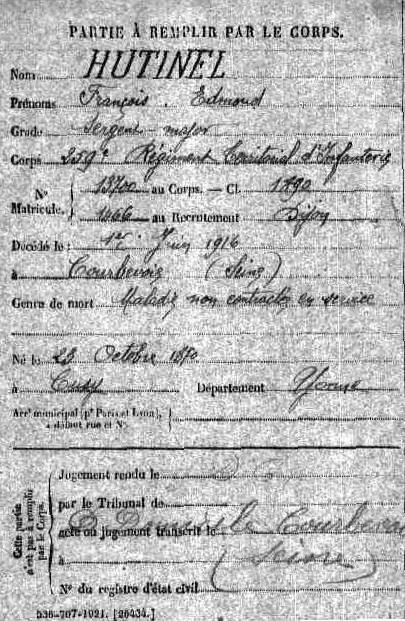 PARTIE À REMPLIR PAR LE CORPS.
Nom HUTINEL
Prénoms François Edmond
Grade Sergent-major
Corps 259e Régiment Territorial d'Infanterie
No Matricule. 13700 au Corps. — Cl. 1890
1466 au Recrutement Dijon
Décédé le 1er Juin 1916
à Courbevoie (Seine)
Genre de mort Maladie non contractée en service
Né le 23 Octobre 1870
à Cuzy Département Yonne
Arrt municipal (pr Paris et Lyon), à défaut rue et No.
Cette partie n'est pas à remplir par le Corps.
Jugement rendu le
par le Tribunal de
acte ou jugement transcrit le
à Courbevoie (Seine)
No du registre d'état civil
536-707-1921. [26434.]